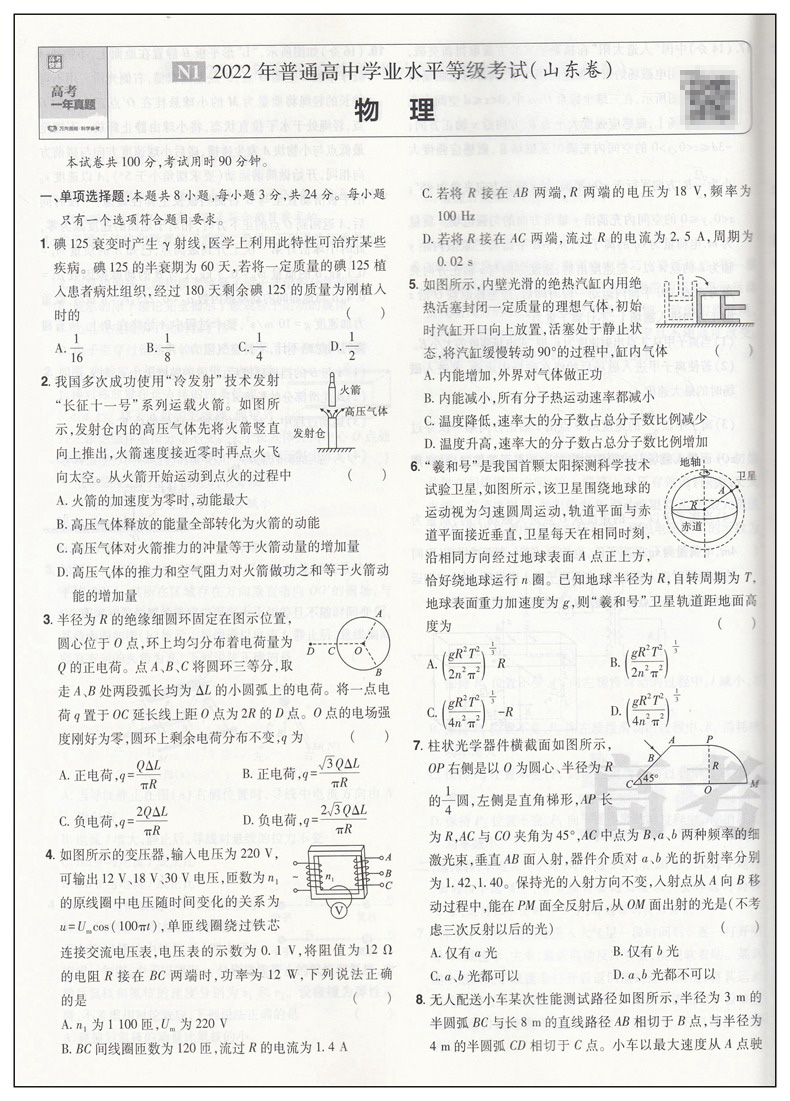 高考
一年真题
万向思维·科学备考
N1 2022年普通高中学业水平等级考试(山东卷)
物 理
本试卷共100分,考试用时90分钟。
一、单项选择题:本题共8小题,每小题3分,共24分。每小题
只有一个选项符合题目要求。
1. 碘125衰变时产生γ射线,医学上利用此特性可治疗某些
疾病。碘125的半衰期为60天,若将一定质量的碘125植
入患者病灶组织,经过180天剩余碘125的质量为刚植入
时的 ( )
A. 1/16 B. 1/8 C. 1/4 D. 1/2
2. 我国多次成功使用“冷发射”技术发射
“长征十一号”系列运载火箭。如图所
示,发射仓内的高压气体先将火箭竖直
向上推出,火箭速度接近零时再点火飞
向太空。从火箭开始运动到点火的过程中 ( )
火箭
高压气体
发射仓
A. 火箭的加速度为零时,动能最大
B. 高压气体释放的能量全部转化为火箭的动能
C. 高压气体对火箭推力的冲量等于火箭动量的增加量
D. 高压气体的推力和空气阻力对火箭做功之和等于火箭动
能的增加量
3. 半径为R的绝缘细圆环固定在图示位置,
圆心位于O点,环上均匀分布着电荷量为
Q的正电荷。点A、B、C将圆环三等分,取
走A、B处两段弧长均为ΔL的小圆弧上的电荷。将一点电
荷q置于OC延长线上距O点为2R的D点。O点的电场强
度刚好为零,圆环上剩余电荷分布不变,q为 ( )
D C O A B
A. 正电荷,q=QΔL/πR B. 正电荷,q=√3QΔL/πR
C. 负电荷,q=2QΔL/πR D. 负电荷,q=2√3QΔL/πR
4. 如图所示的变压器,输入电压为220 V,
可输出12 V、18 V、30 V电压,匝数为n₁
的原线圈中电压随时间变化的关系为
u=Uₘcos(100πt),单匝线圈绕过铁芯
连接交流电压表,电压表的示数为0.1 V,将阻值为12 Ω
的电阻R接在BC两端时,功率为12 W,下列说法正确
的是 ( )
n₁ A B C V
A. n₁为1 100匝,Uₘ为220 V
B. BC间线圈匝数为120匝,流过R的电流为1.4 A
C. 若将R接在AB两端,R两端的电压为18 V,频率为
100 Hz
D. 若将R接在AC两端,流过R的电流为2.5 A,周期为
0.02 s
5. 如图所示,内壁光滑的绝热汽缸内用绝
热活塞封闭一定质量的理想气体,初始
时汽缸开口向上放置,活塞处于静止状
态,将汽缸缓慢转动90°的过程中,缸内气体 ( )
A. 内能增加,外界对气体做正功
B. 内能减小,所有分子热运动速率都减小
C. 温度降低,速率大的分子数占总分子数比例减少
D. 温度升高,速率大的分子数占总分子数比例增加
6. “羲和号”是我国首颗太阳探测科学技术
试验卫星,如图所示,该卫星围绕地球的
运动视为匀速圆周运动,轨道平面与赤
道平面接近垂直,卫星每天在相同时刻,
沿相同方向经过地球表面A点正上方,
恰好绕地球运行n圈。已知地球半径为R,自转周期为T,
地球表面重力加速度为g,则“羲和号”卫星轨道距地面高
度为 ( )
地轴
卫星
A
R
赤道
A. (gR²T²/2n²π²)^(1/3)-R B. (gR²T²/2n²π²)^(1/3)
C. (gR²T²/4n²π²)^(1/3)-R D. (gR²T²/4n²π²)^(1/3)
7. 柱状光学器件横截面如图所示,
OP右侧是以O为圆心、半径为R
的1/4圆,左侧是直角梯形,AP长
为R,AC与CO夹角为45°,AC中点为B,a、b两种频率的细
激光束,垂直AB面入射,器件介质对a、b光的折射率分别
为1.42、1.40。保持光的入射方向不变,入射点从A向B移
动过程中,能在PM面全反射后,从OM面出射的光是(不考
虑三次反射以后的光) ( )
A P B R 45° C O M
A. 仅有a光 B. 仅有b光
C. a、b光都可以 D. a、b光都不可以
8. 无人配送小车某次性能测试路径如图所示,半径为3 m的
半圆弧BC与长8 m的直线路径AB相切于B点,与半径为
4 m的半圆弧CD相切于C点。小车以最大速度从A点驶
高考